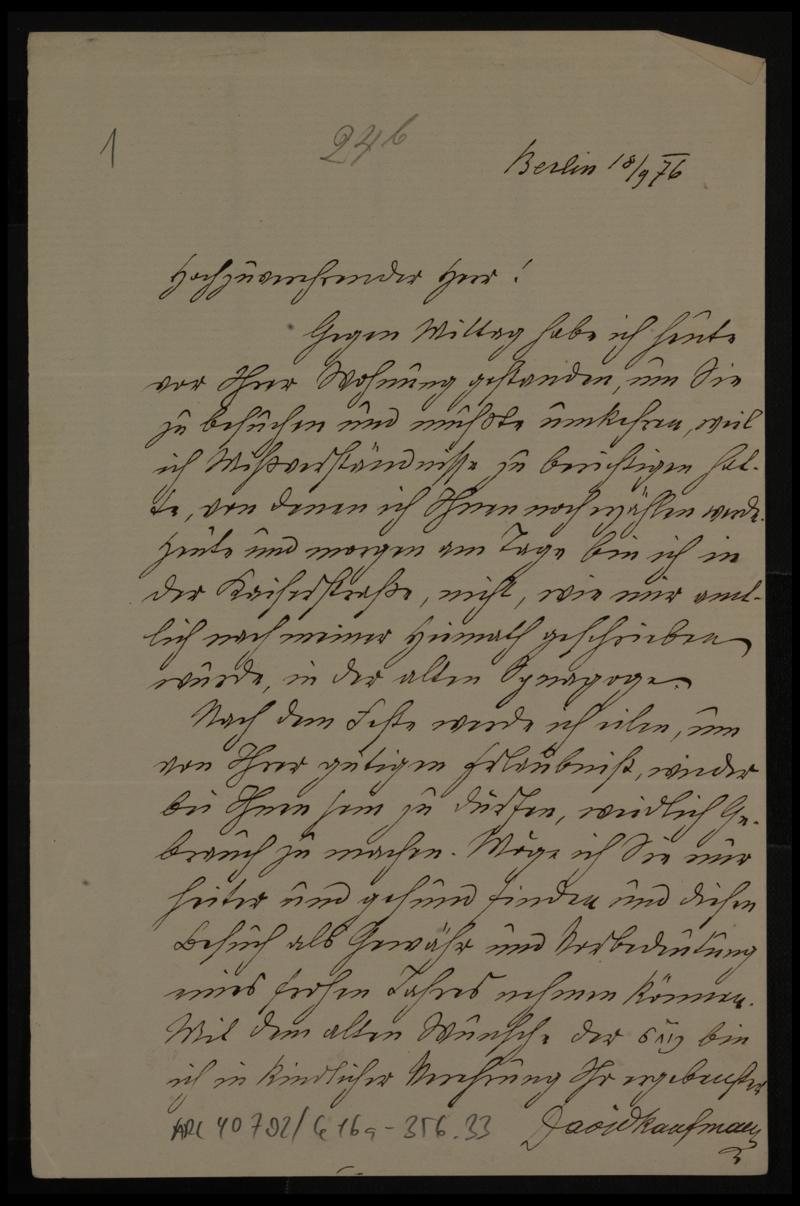 1
246
Berlin 18/9 76
Hochzuverehrender Herr!
Gegen Mittag habe ich heute
vor Ihrer Wohnung gestanden, um Sie
zu besuchen und mußte umkehren, weil
ich Mißverständnisse zu berichtigen hat-
te, von denen ich Ihnen noch erzählen werde.
Heute und morgen am Tage bin ich in
der Kaiserstraße, nicht, wie mir amt-
lich nach meiner Heimath geschrieben
wurde, in der alten Synagoge.
Nach dem Feste werde ich eilen, um
von Ihrer gütigen Erlaubniß, wieder
bei Ihnen sein zu dürfen, weidlich Ge-
brauch zu machen. Möge ich Sie nur
heiter und gesund finden und diesen
Besuch als Gewähr und Vorbedeutung
eines frohen Jahres nehmen können.
Mit dem alten Wunsche der bin
ich in kindlicher Verehrung Ihr ergebenster
David Kaufmann
ARC 4o 792/G 16a-356.33